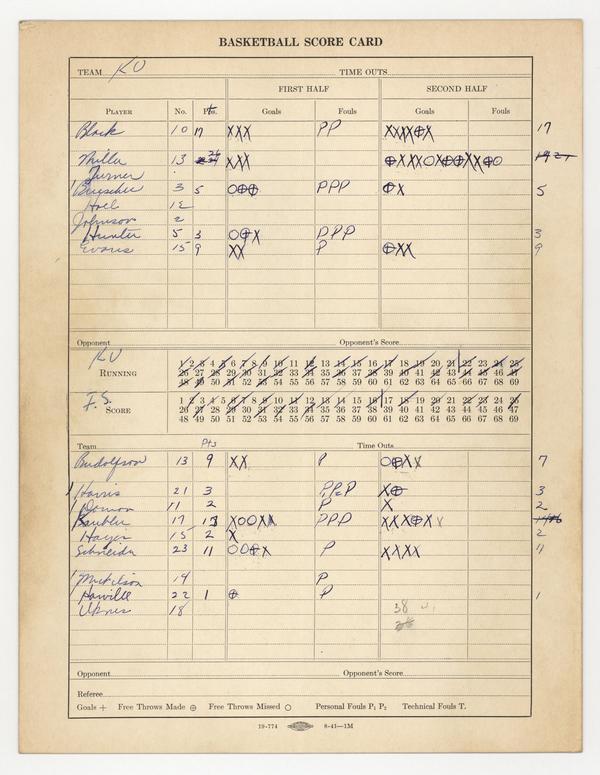 BASKETBALL SCORE CARD
TEAM KU TIME OUTS
FIRST HALF SECOND HALF
PLAYER No. Pts. Goals Fouls Goals Fouls
Black 10 17 XXX PP 17
Miller 13 XXX
Turner
Buescher 3 5 O⊕⊕ PPP ⊕X 5
Hall 12
Johnson 2
Hunter 5 3 O⊕X PPP 3
Evans 15 9 XX P ⊕XX 9
Opponent Opponent's Score
KU
RUNNING
1 2 3 4 5 6 7 8 9 10 11 12 13 14 15 16 17 18 19 20 21 22 23 24 25
26 27 28 29 30 31 32 33 34 35 36 37 38 39 40 41 42 43 44 45 46 47
48 49 50 51 52 53 54 55 56 57 58 59 60 61 62 63 64 65 66 67 68 69
I.S.
SCORE
1 2 3 4 5 6 7 8 9 10 11 12 13 14 15 16 17 18 19 20 21 22 23 24 25
26 27 28 29 30 31 32 33 34 35 36 37 38 39 40 41 42 43 44 45 46 47
48 49 50 51 52 53 54 55 56 57 58 59 60 61 62 63 64 65 66 67 68 69
Pts
Team Time Outs
Budolfson 13 9 XX P O⊕XX 7
Harris 21 3 X⊕ 3
11 2 P X 2
17 13 XOOXX PPP XXX⊕XX
Hayes 15 2 X 2
Schneider 23 11 OO⊕X P XXXX 11
14 P
22 1 ⊕ P 1
18 38
Opponent Opponent's Score
Referee
Goals + Free Throws Made ⊕ Free Throws Missed ○ Personal Fouls P₁ P₂ Technical Fouls T.
19-774 8-41—1M